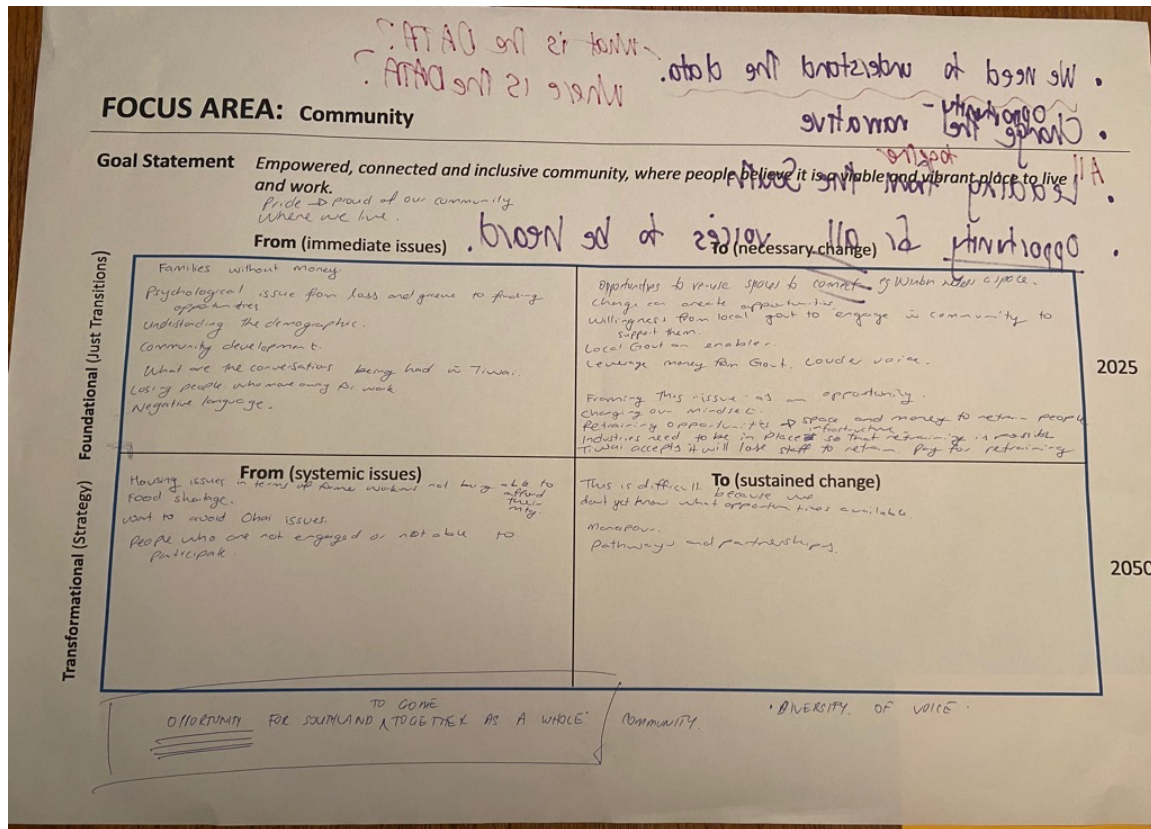 What is the DATA?
Where is the DATA?
• We need to understand the data.
Opportunity -
• Change the narrative
together
All
• Leading from the South
• Opportunity for all voices to be heard.
FOCUS AREA: Community
Goal Statement Empowered, connected and inclusive community, where people believe it is a viable and vibrant place to live
and work.
Pride → proud of our community
where we live.
From (immediate issues)
To (necessary change)
Foundational (Just Transitions)
Families without money.
Psychological issue from loss and grieve to finding
opportunities
understanding the demographic.
Community development.
What are the conversations being had in Tiwai.
Losing people who move away for work
Negative language.
Opportunities to re-use spaces to connect eg Winton needs a space.
change can create opportunities.
Willingness from local govt to engage in community to
support them.
Local Govt an enabler.
Leverage money from Govt. Louder voice.
Framing this "issue" as an opportunity.
Changing our mindset.
Retraining opportunities → space and money to retrain people
infrastructure
Industries need to be in place so that retraining is possible
Tiwai accepts it will lose staff to retrain pay for retraining
2025
Transformational (Strategy)
From (systemic issues)
Housing issues in terms of some workers not being able to
afford
their
mtg.
Food shortage.
want to avoid Ohai issues.
People who are not engaged or not able to
participate.
To (sustained change)
This is difficult because we
don't yet know what opportunities available.
Manapouri.
Pathways and partnerships.
2050
TO COME
OPPORTUNITY FOR SOUTHLAND ^ TOGETHER AS A WHOLE COMMUNITY.
• DIVERSITY OF VOICE.